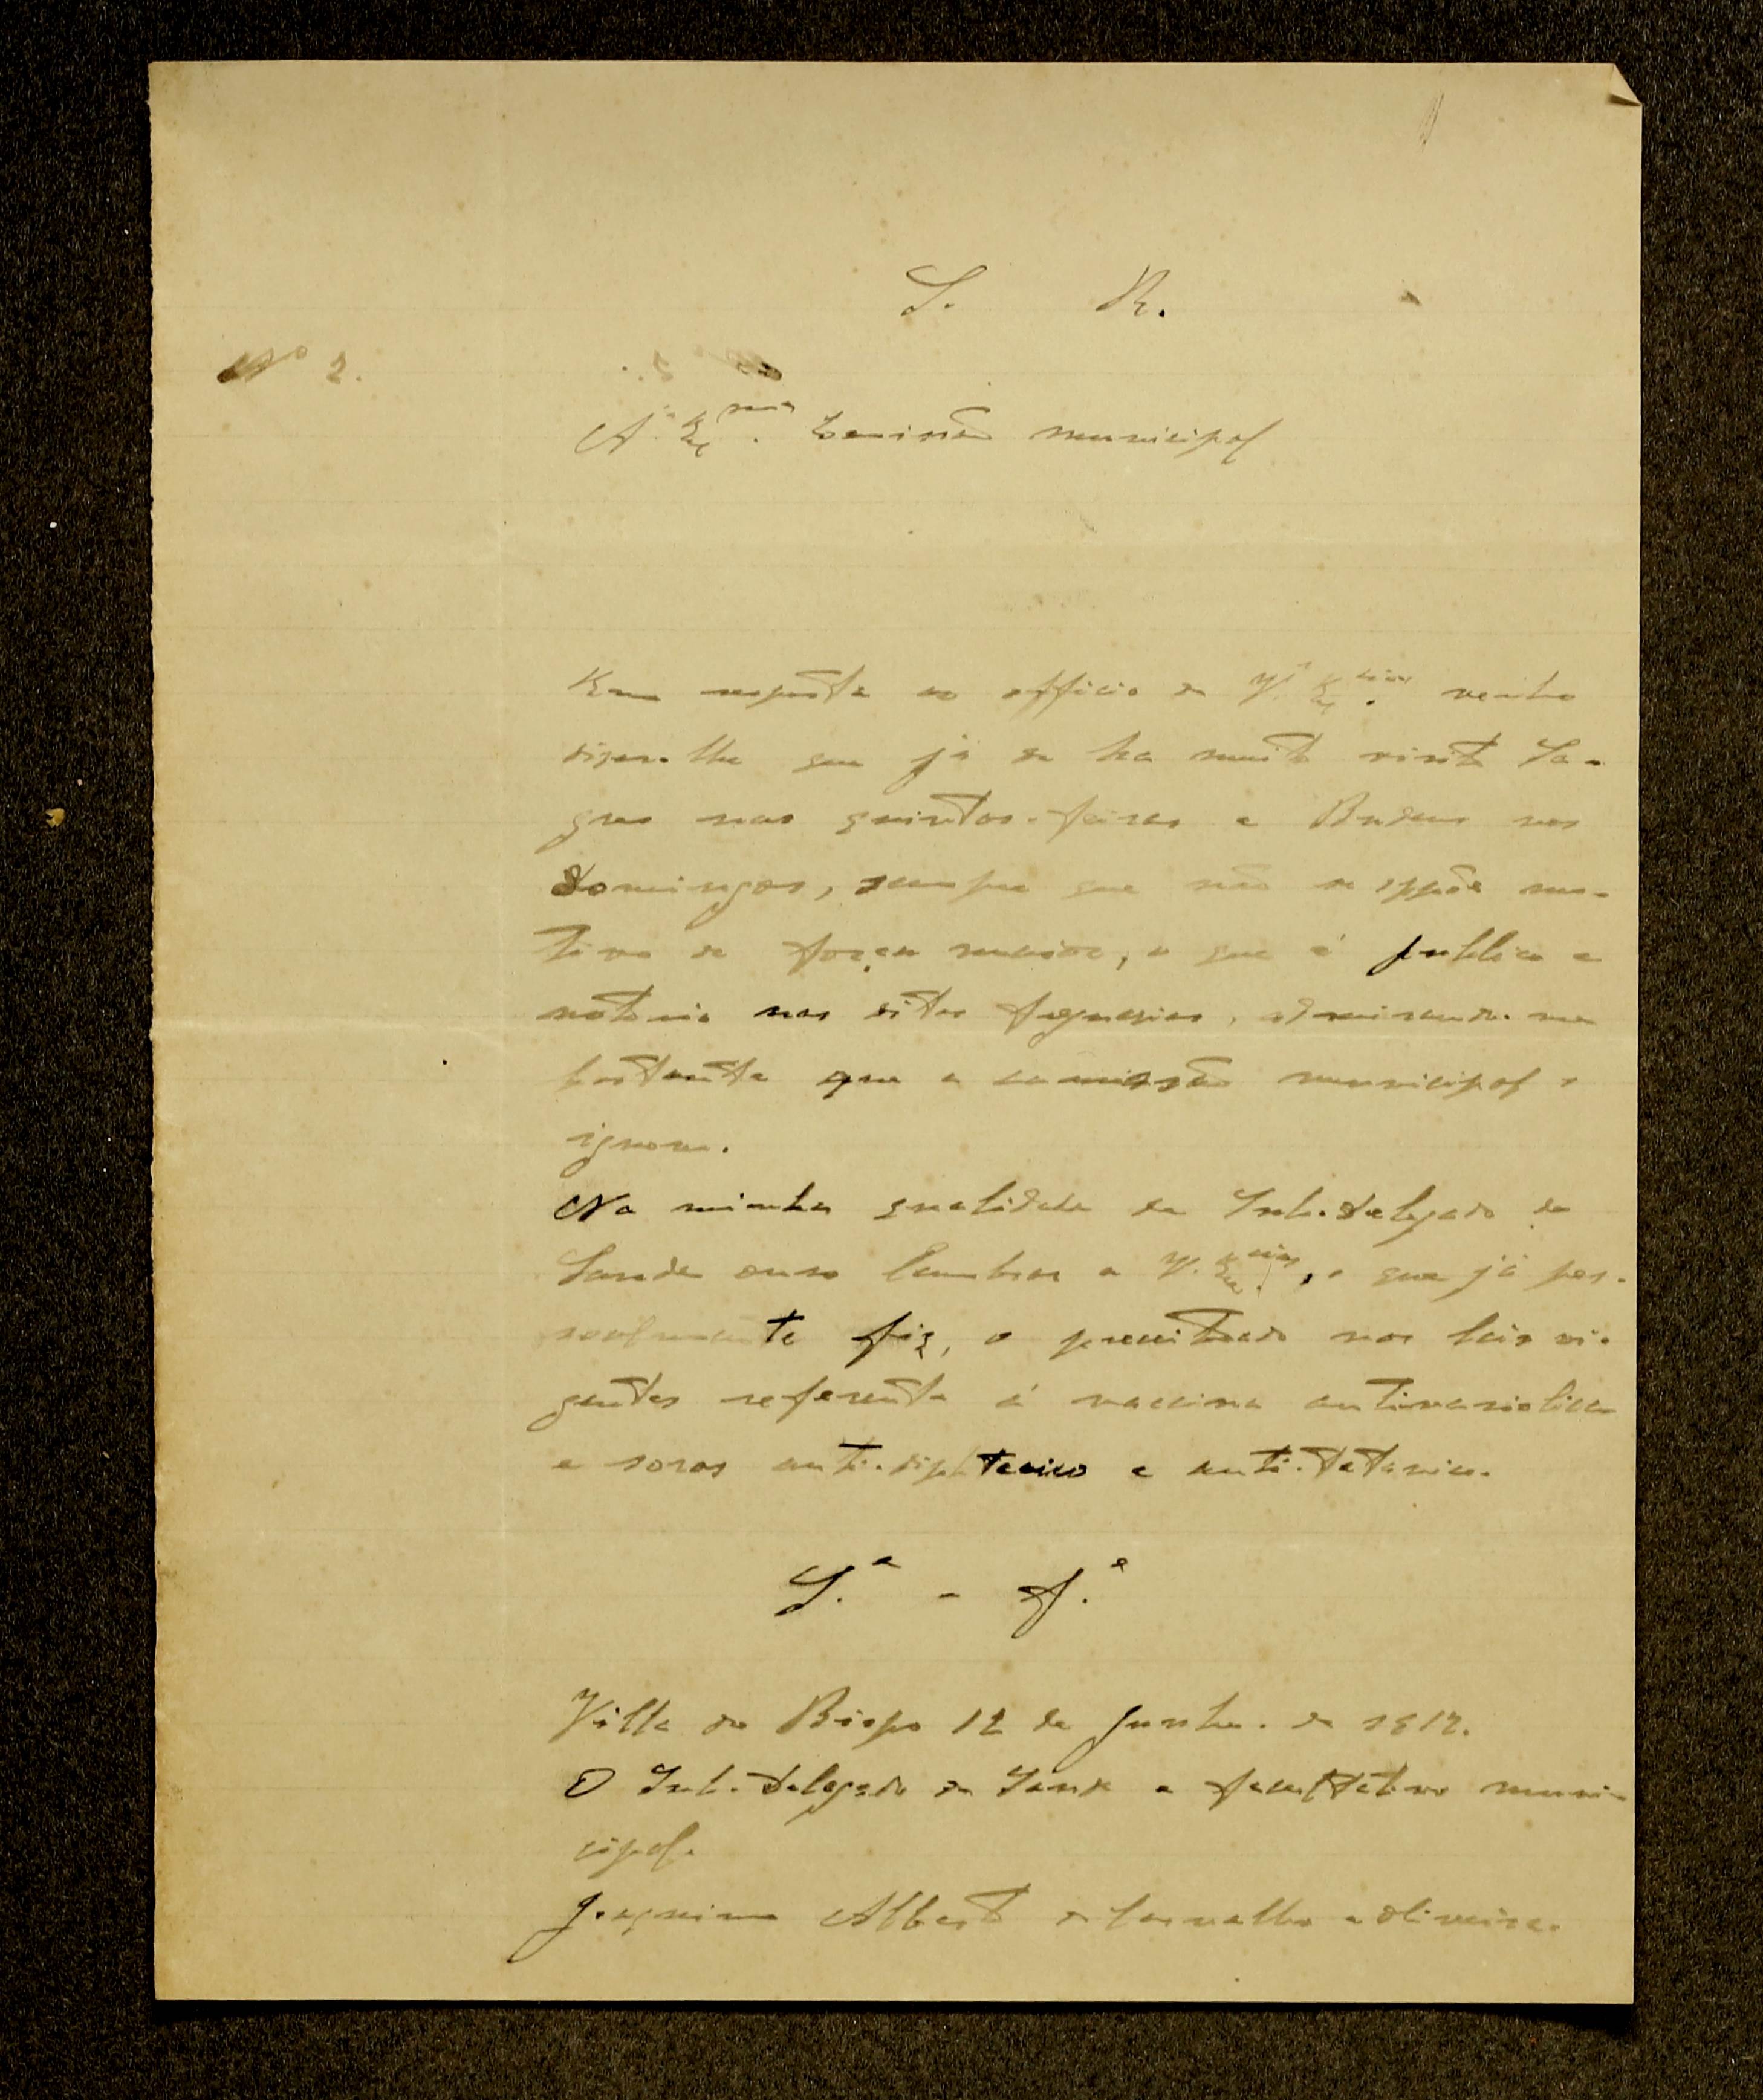 S. R.
Nº 2.
A Ex.ma Comissão municipal
Em resposta ao officio de V. Ex.cias venho
dizer-lhe que já de ha muito visito Sa-
gres nas quintas-feiras e Budens nos
domingos, sempre que não se oppõe mo-
tivo de força maior, o que é publico e
notorio nas ditas freguezias, admirando-me
bastante que a comissão municipal o
ignore.
Na minha qualidade de Sub-delegado de
Saude ouso lembrar a V. Ex.cias, o que já pes-
soalmente fiz, o preceituado nas leis vi-
gentes referente á vaccina antivariolica
e soros anti-diphterico e anti-tetanico.
S.e - F.e
Villa do Bispo 12 de Junho de 1912.
O Sub-delegado de Saude e facultativo muni-
cipal.
Joaquim Alberto de Carvalho e Oliveira.